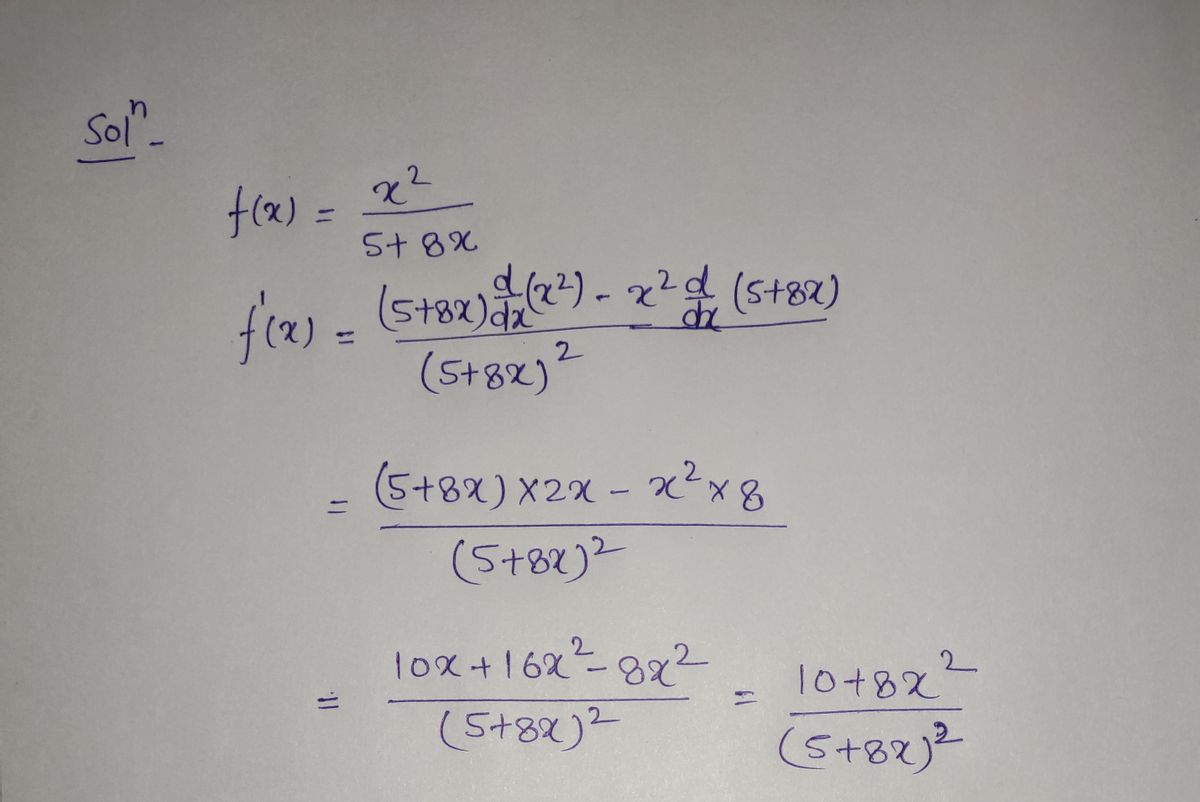 Solⁿ-
f(x) = x²/(5+8x)
f'(x) = ((5+8x) d/dx (x²) - x² d/dx (5+8x))/(5+8x)²
= ((5+8x)×2x - x²×8)/(5+8x)²
= (10x+16x²-8x²)/(5+8x)² = (10+8x²)/(5+8x)²